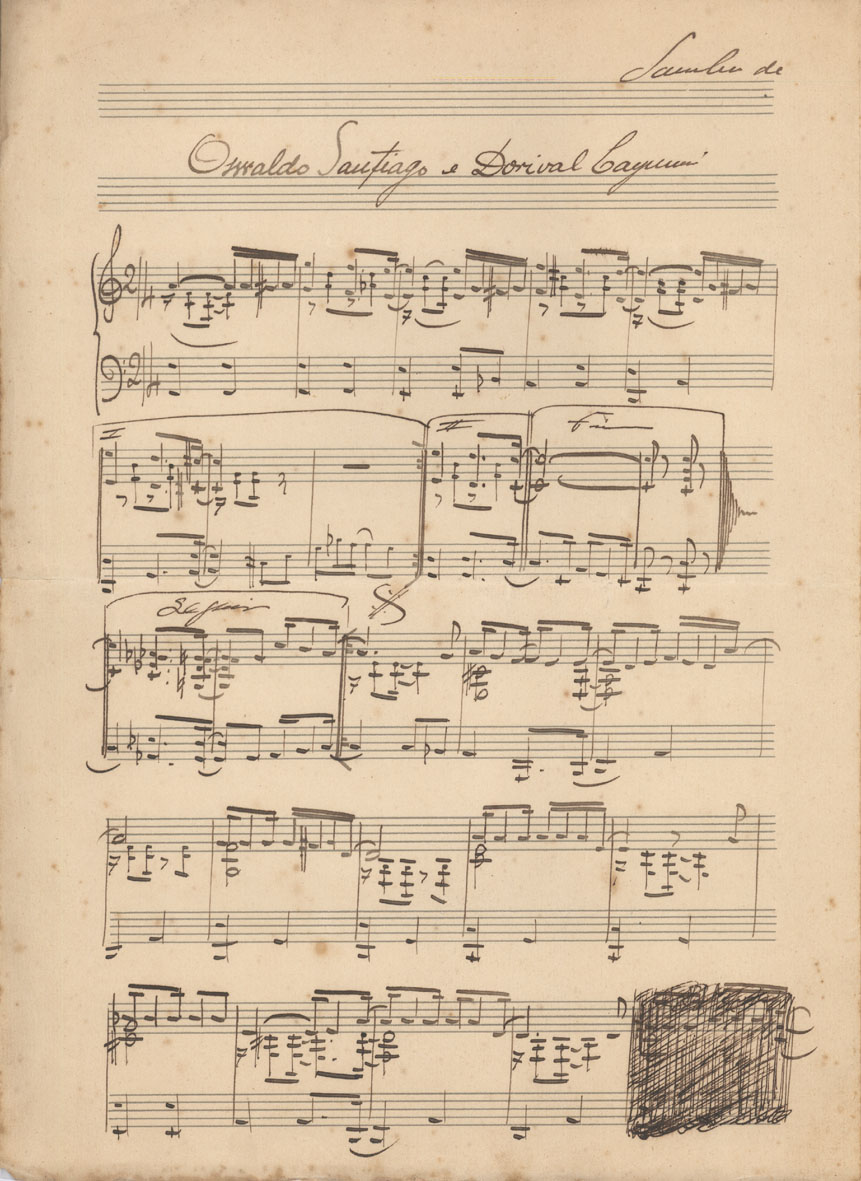 Samba de
Oswaldo Santiago e Dorival Caymmi
2
2
I II Fim
Seguir